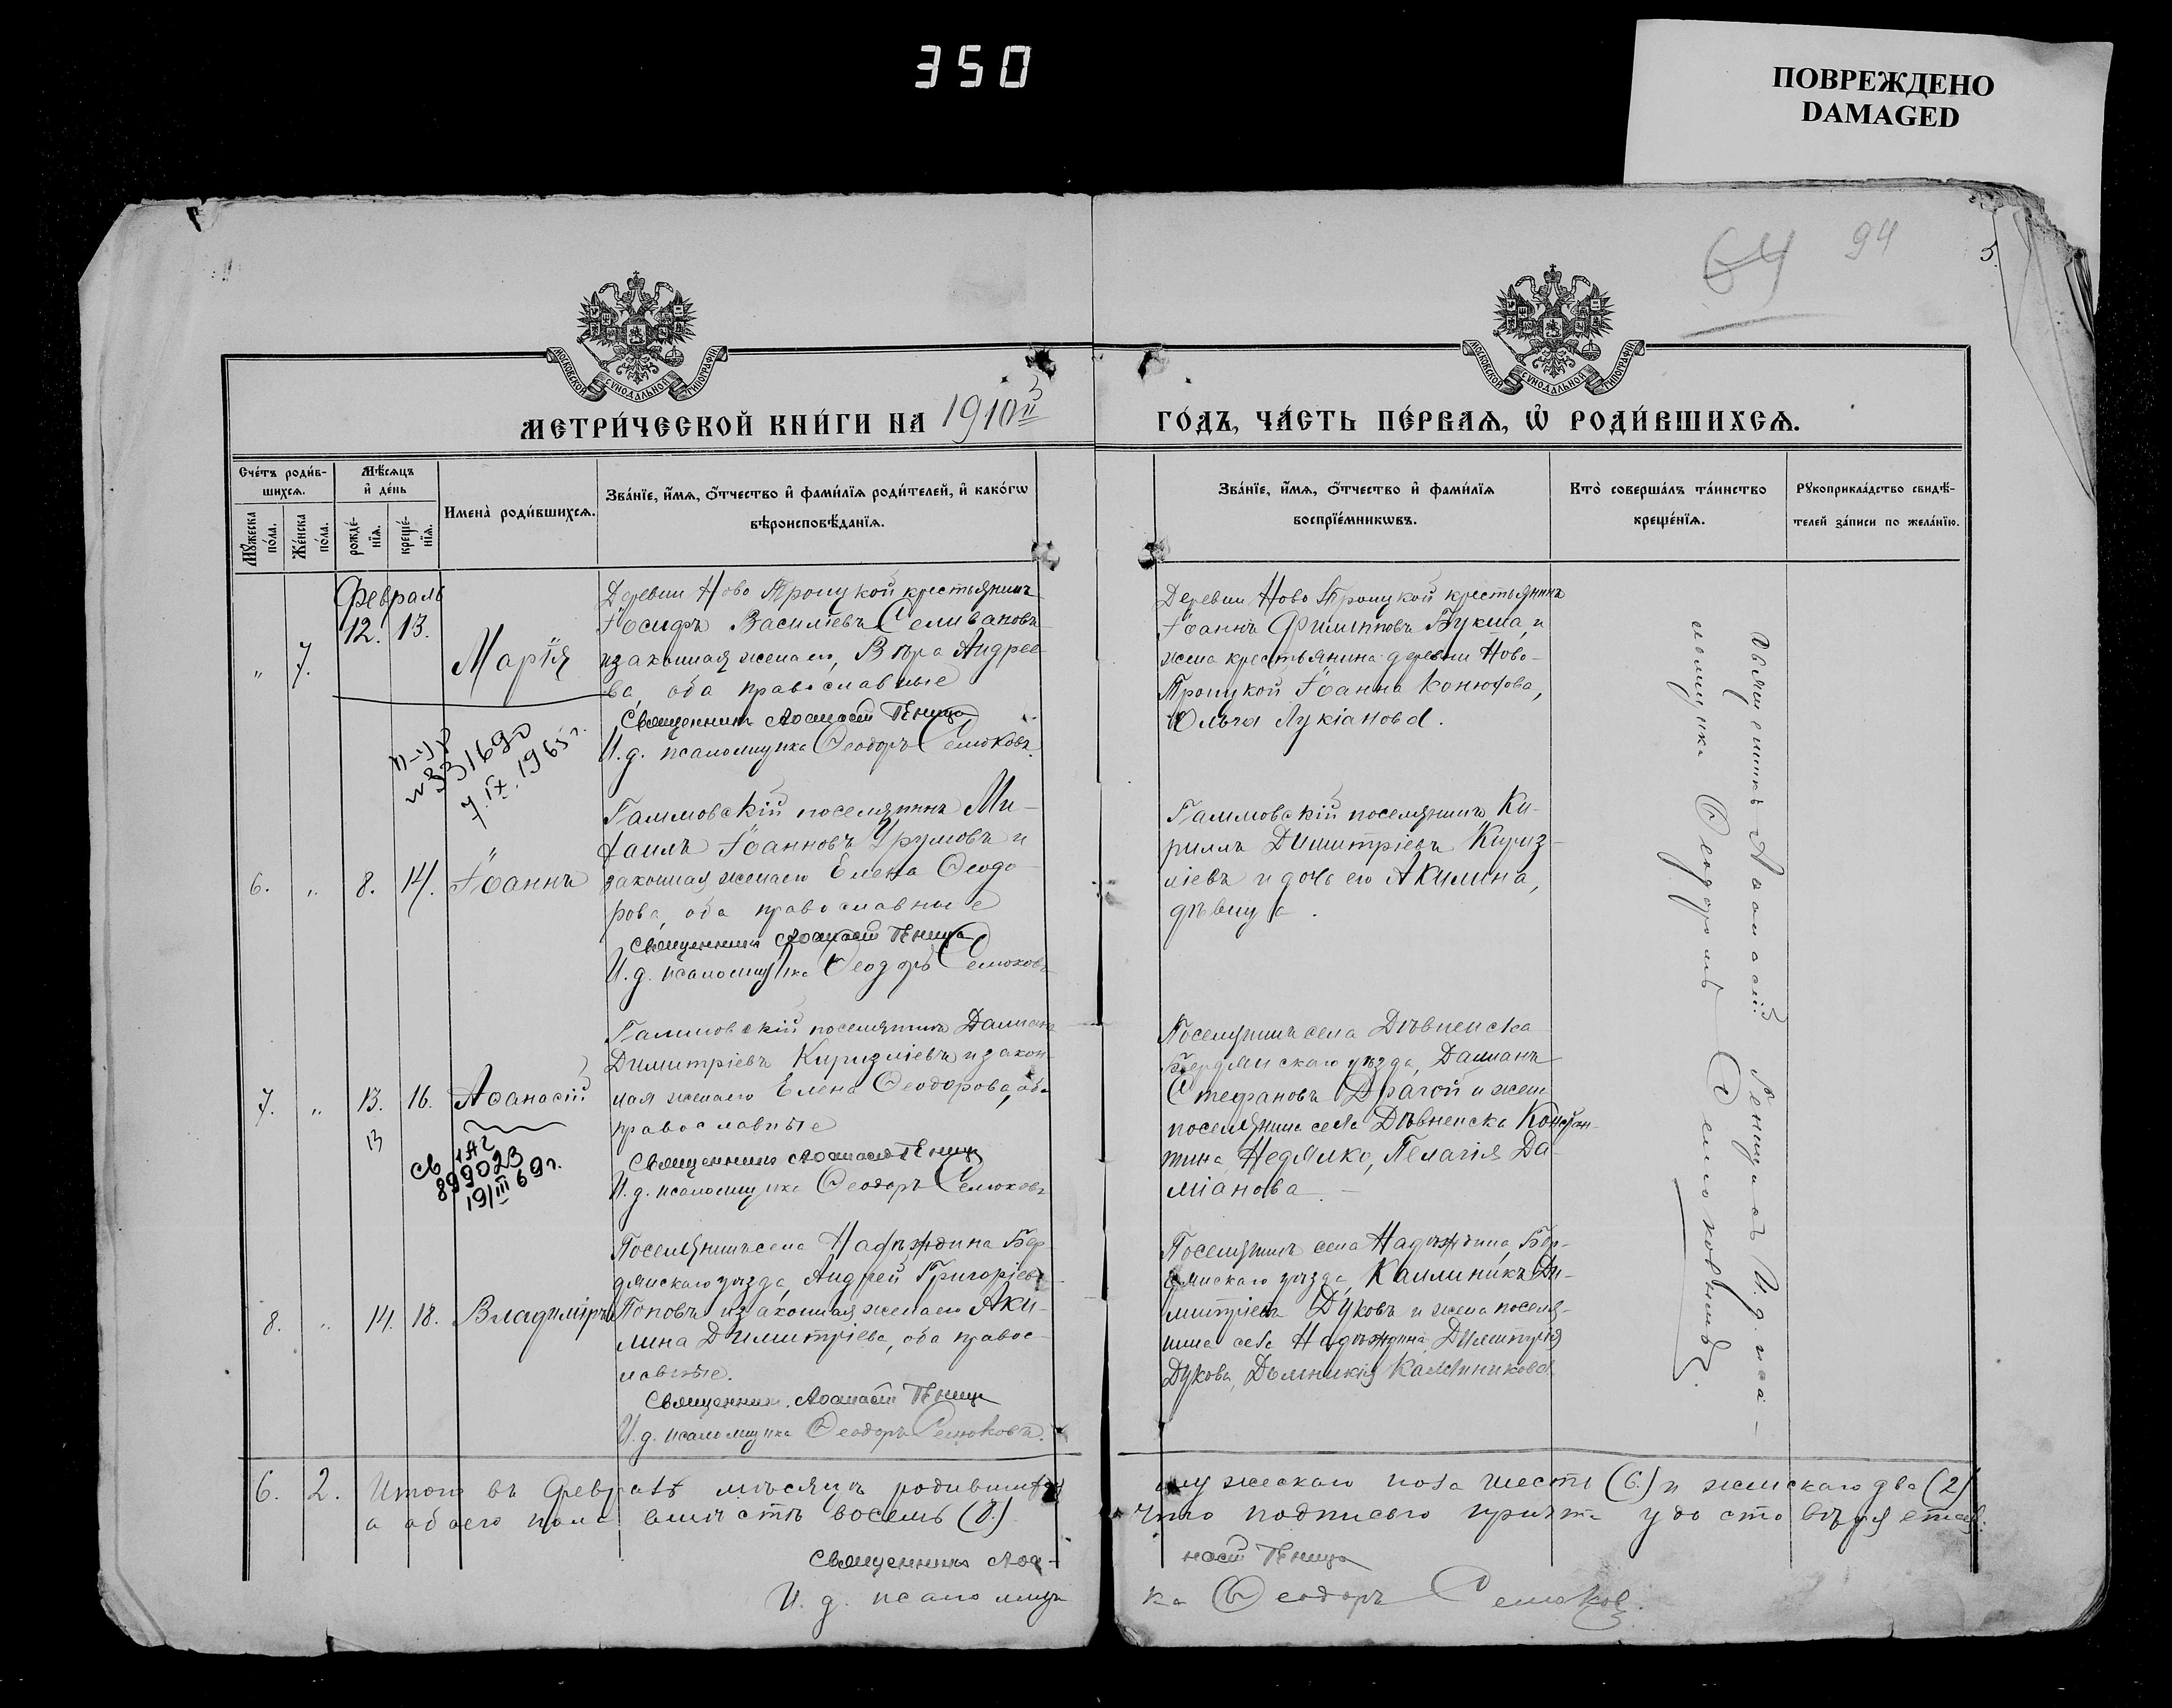 350
ПОВРЕЖДЕНО
DAMAGED
64 94
5.
МОСКОВСКОЙ СѴНОДАЛЬНОЙ ТИПОГРАФІИ
МОСКОВСКОЙ СѴНОДАЛЬНОЙ ТИПОГРАФІИ
МЕТРИ́ЧЕСКОЙ КНИ́ГИ НА 1910й ГО́ДЪ, ЧА́СТЬ ПЕ́РВАѦ, Ѽ РОДИ́ВШИХСѦ.
Сче́тъ роди́в-
шихсѧ.
Мꙋ́жеска по́ла.
Же́нска по́ла.
Мѣ́сѧцъ
и҆ де́нь
рожде́-
нїѧ.
креще́-
нїѧ.
Имена̀ роди́вшихсѧ.
Зва́нїе, и҆́мѧ, ѻ҆́тчество и҆ фами́лїѧ роди́телей, и҆ како́гѡ
вѣроисповѣ́данїѧ.
Зва́нїе, и҆́мѧ, ѻ҆́тчество и҆ фами́лїѧ
воспрїе́мникѡвъ.
Кто̀ соверша́лъ та́инство
креще́нїѧ.
Рꙋкоприкла́дство свидѣ́-
телей за́писи по жела́нїю.
Февраль
" 7. 12. 13. Марія
Деревни Ново Троицкой крестьянинъ
Іосифъ Василіевъ Селивановъ
и законная жена его, Вѣра Андрее-
ва, оба православные
Священникъ Аѳанасій Пеница
И.д. псаломщика Ѳеодоръ Семоковъ.
Деревни Ново Троицкой крестьянинъ
Іоаннъ Филипповъ Букша, и
жена крестьянина деревни Ново-
Троицкой Іоанна Конюхова,
Ольга Лукіанова.
п-ЧР
№331690
7.IX.1965г.
6. " 8. 14. Іоаннъ
Галимовскій поселянинъ Ми-
хаилъ Іоанновъ Урумовъ и
законная жена его Елена Ѳеодо-
рова, оба православные
Священникъ Аѳанасій Пеница
И.д. псаломщика Ѳеодоръ Семоковъ
Галимовскій поселянинъ Ки-
риллъ Димитріевъ Кириз-
ліевъ и дочь его Акилина,
дѣвица.
7. " 13. 16. Аѳанасій
13
Галимовскій поселянинъ Даміанъ
Димитріевъ Киризліевъ и закон-
ная жена его Елена Ѳеодорова, оба
православные
Священникъ Аѳанасій Пеница
И.д. псаломщика Ѳеодоръ Семоковъ
Поселянинъ села Дѣвненска
Бердянскаго уѣзда, Даміанъ
Стефановъ Драгой и жена
поселянина села Дѣвненска Констан-
тина Недялко, Пелагія Да-
міанова.
св 1АГ
899023
19/III 69г.
8. " 14. 18. Владиміръ
Поселянинъ села Надѣждина Бер-
дянскаго уѣзда, Андрей Григоріевъ
Поповъ и законная жена его Аки-
лина Димитріева, оба правос-
лавные.
Священникъ Аѳанасій Пеница
И.д. псаломщика Ѳеодоръ Семоковъ.
Поселянинъ села Надѣждина, Бер-
дянскаго уѣзда, Каллиникъ Ди-
митріевъ Дуковъ и жена поселя-
нина села Надѣждина Димитрія
Дукова, Домникія Каллиникова
Священникъ Аѳанасій Пеница съ И.д. пса-
ломщика Ѳеодоромъ Семоковымъ.
6. 2. Итого въ Февралѣ мѣсяцѣ родившихся мужескаго пола шесть (6.) и женскаго два (2)
а обоего пола вмѣстѣ восемь (8.) что подписью причта удостовѣряется.
Священникъ Аѳанасій Пеница
И.д. псаломщика Ѳеодоръ Семоковъ.